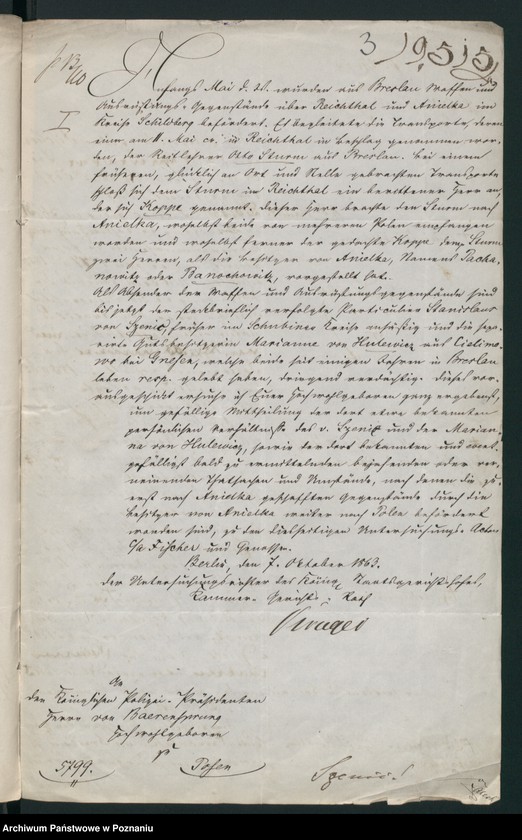 3 1955
p 13/10
I
Anfangs Mai d. Js. wurden aus Breslau Waffen und
Ausrüstungs-Gegenstände über Reichthal und Anielka im
Kreise Schildberg befördert. Es begleitete die Transporte, deren
einer am 11. Mai cr. in Reichthal in Beschlag genommen wor-
den, der Reitlehrer Otto Sturm aus Breslau. Bei einem
früheren, glücklich an Ort und Stelle gebrachten Transporte
schloß sich dem Sturm in Reichthal ein berittener Herr an,
der sich Koppe genannt. Dieser Herr brachte den Sturm nach
Anielka, woselbst beide von mehreren Polen empfangen
worden und woselbst ferner der gedachte Koppe dem Sturm
zwei Herren, als die Besitzer von Anielka, Namens Pacha-
nowitz oder Banochowitz, vorgestellt hat.
Als Absender der Waffen und Ausrüstungsgegenstände sind
bis jetzt der steckbrieflich verfolgte Particulier Stanislaus
von Szenic, früher im Schubiner Kreise ansässig und die sep-
arirte Gutsbesitzerin Marianne von Hulewicz aus Cielimo-
wo bei Gnesen, welche beide seit einigen Jahren in Breslau
leben resp. gelebt haben, dringend verdächtig. Dieses vor-
ausgeschickt ersuche ich Euer Hochwohlgeboren ganz ergebenst,
um gefällige Mittheilung der dort etwa bekannten
persönlichen Verhältnisse des v. Szenic und der Marian-
na von Hulewicz, sowie der dort bekannten und
gefälligst bald zu ermittelnden bejahenden oder ver-
neinenden Thatsachen und Umstände, nach denen die zu-
erst nach Anielka geschafften Gegenstände durch die
Besitzer von Anielka weiter nach Polen befördert
worden sind, zu den diesseitigen Untersuchungs-Acten
c/a Fischer und Genossen.
Berlin, den 7. Oktober 1863.
Der Untersuchungsrichter des Königl. Staatsgerichtshofes,
Kammer-Gerichts-Rath
An
den Königlichen Polizei-Präsidenten
Herrn von Baerensprung
Hochwohlgeboren
Posen
5799.
Szenic.
Archiwum Państwowe w Poznaniu